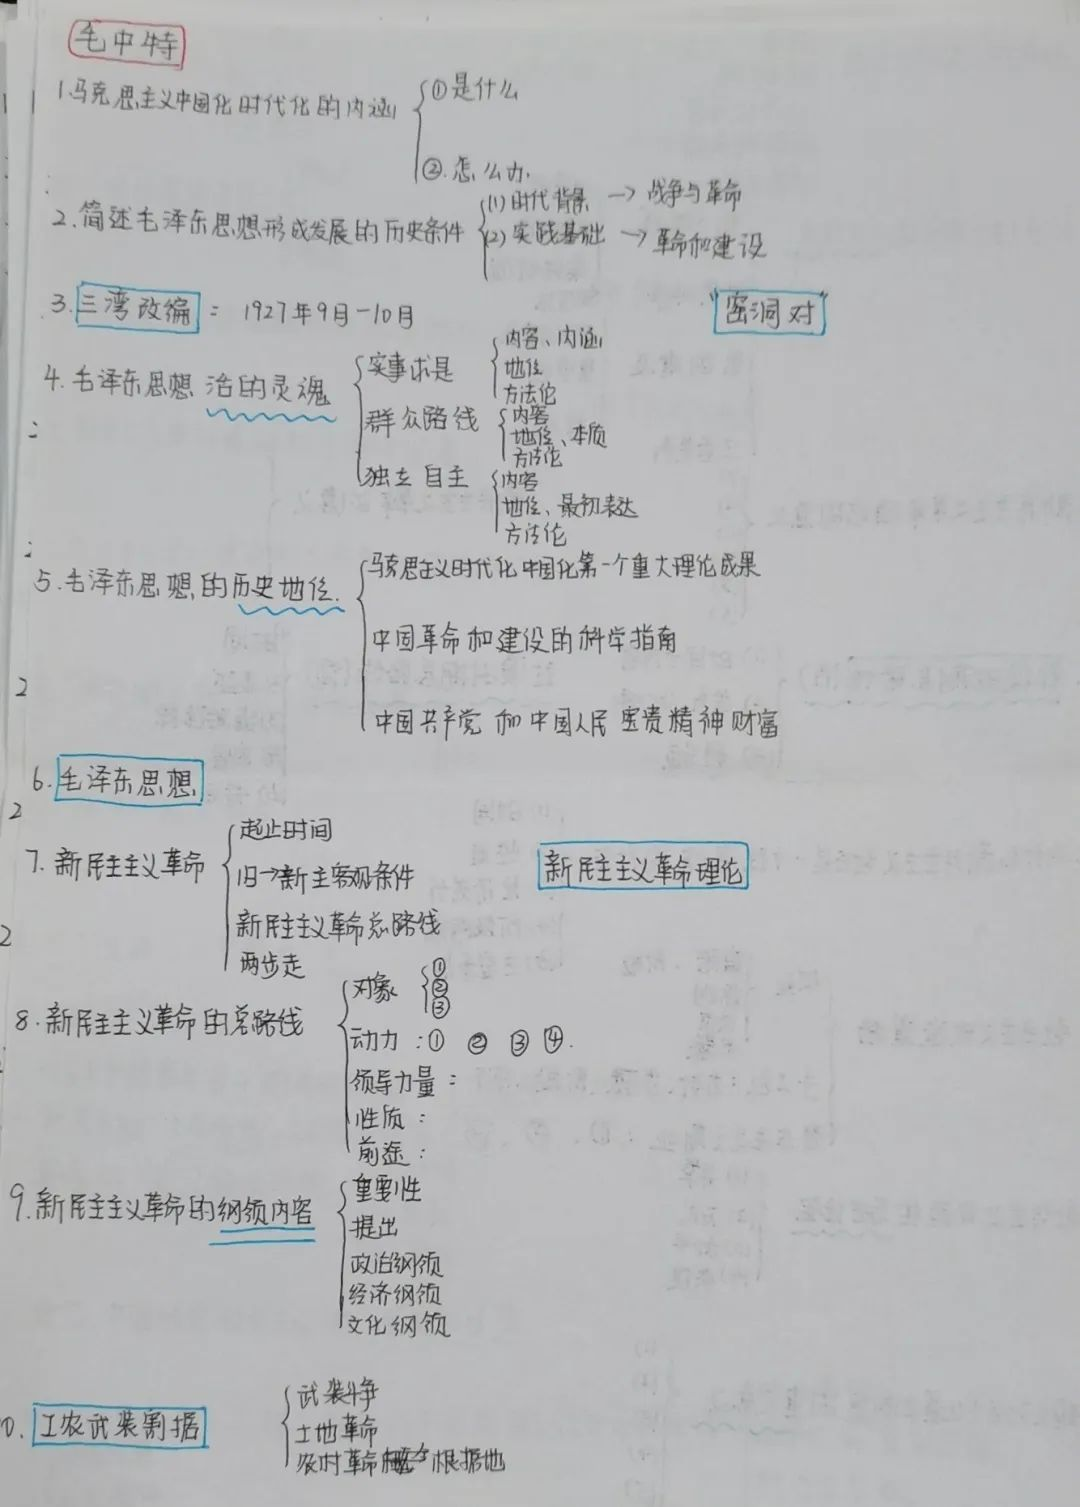 毛中特
1.马克思主义中国化时代化的内涵
①是什么
②.怎么办.
2.简述毛泽东思想形成发展的历史条件
(1)时代背景 → 战争与革命
(2)实践基础 → 革命和建设
3.三湾改编: 1927年9月-10月
"窑洞对"
4.毛泽东思想 活的灵魂
实事求是
内容、内涵
地位
方法论
群众路线
内容
地位、本质
方法论
独立自主
内容
地位、最初表达
方法论
5.毛泽东思想的历史地位.
马克思主义时代化中国化第一个重大理论成果
中国革命和建设的科学指南
中国共产党和中国人民宝贵精神财富
6.毛泽东思想
7.新民主主义革命
起止时间
旧→新主客观条件
新民主主义革命总路线
两步走
新民主主义革命理论
8.新民主主义革命的总路线
对象
①
②
③
动力:① ② ③ ④.
领导力量:
性质:
前途:
9.新民主主义革命的纲领内容
重要性
提出
政治纲领
经济纲领
文化纲领
0.工农武装割据
武装斗争
土地革命
农村革命根据地